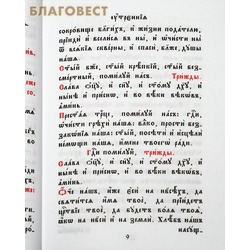 БЛАГОВЕСТ
ᲂу҆́треннїѧ
сокровище благи́хъ, и҆ жи́зни пода́телю,
прїидѝ и҆ всели́сѧ въ ны̀, и҆ ѡ҆чи́сти ны̀
ѿ всѧ́кїѧ скве́рны, и҆ спасѝ, бл҃же, дꙋ́шы
на́шѧ.
Ст҃ы́й бж҃е, ст҃ы́й крѣ́пкїй, ст҃ы́й без-
сме́ртный, поми́лꙋй на́съ. Три́жды.
Сла́ва ѻ҆ц҃ꙋ̀, и҆ сн҃ꙋ, и҆ ст҃о́мꙋ дх҃ꙋ, и҆
ны́нѣ и҆ при́снѡ, и҆ во вѣ́ки вѣкѡ́въ,
а҆ми́нь.
Прест҃а́ѧ трⷪ҇це, поми́лꙋй на́съ: гдⷭ҇и, ѡ҆чи́-
сти грѣхѝ на́шѧ: влⷣко, простѝ без-
закѡ́нїѧ на̑ша: ст҃ы́й, посѣтѝ и҆ и҆сцѣлѝ
не́мѡщи на́шѧ, и҆́мене твоегѡ̀ ра́ди.
Гдⷭ҇и поми́лꙋй, три́жды.
Сла́ва ѻ҆ц҃ꙋ̀, и҆ сн҃ꙋ, и҆ ст҃о́мꙋ дх҃ꙋ, и҆
ны́нѣ и҆ при́снѡ, и҆ во вѣ́ки вѣкѡ́въ,
а҆ми́нь.
Ѻ҆́ч҃е на́шъ, и҆́же є҆сѝ на нб҃сѣ́хъ, да
ст҃и́тсѧ и҆́мѧ твоѐ, да прїи́детъ
црⷭ҇твїе твоѐ, да бꙋ́детъ во́лѧ твоѧ̀,
ꙗ҆́кѡ на нб҃сѝ и҆ на землѝ. Хлѣ́бъ на́шъ
насꙋ́щ-